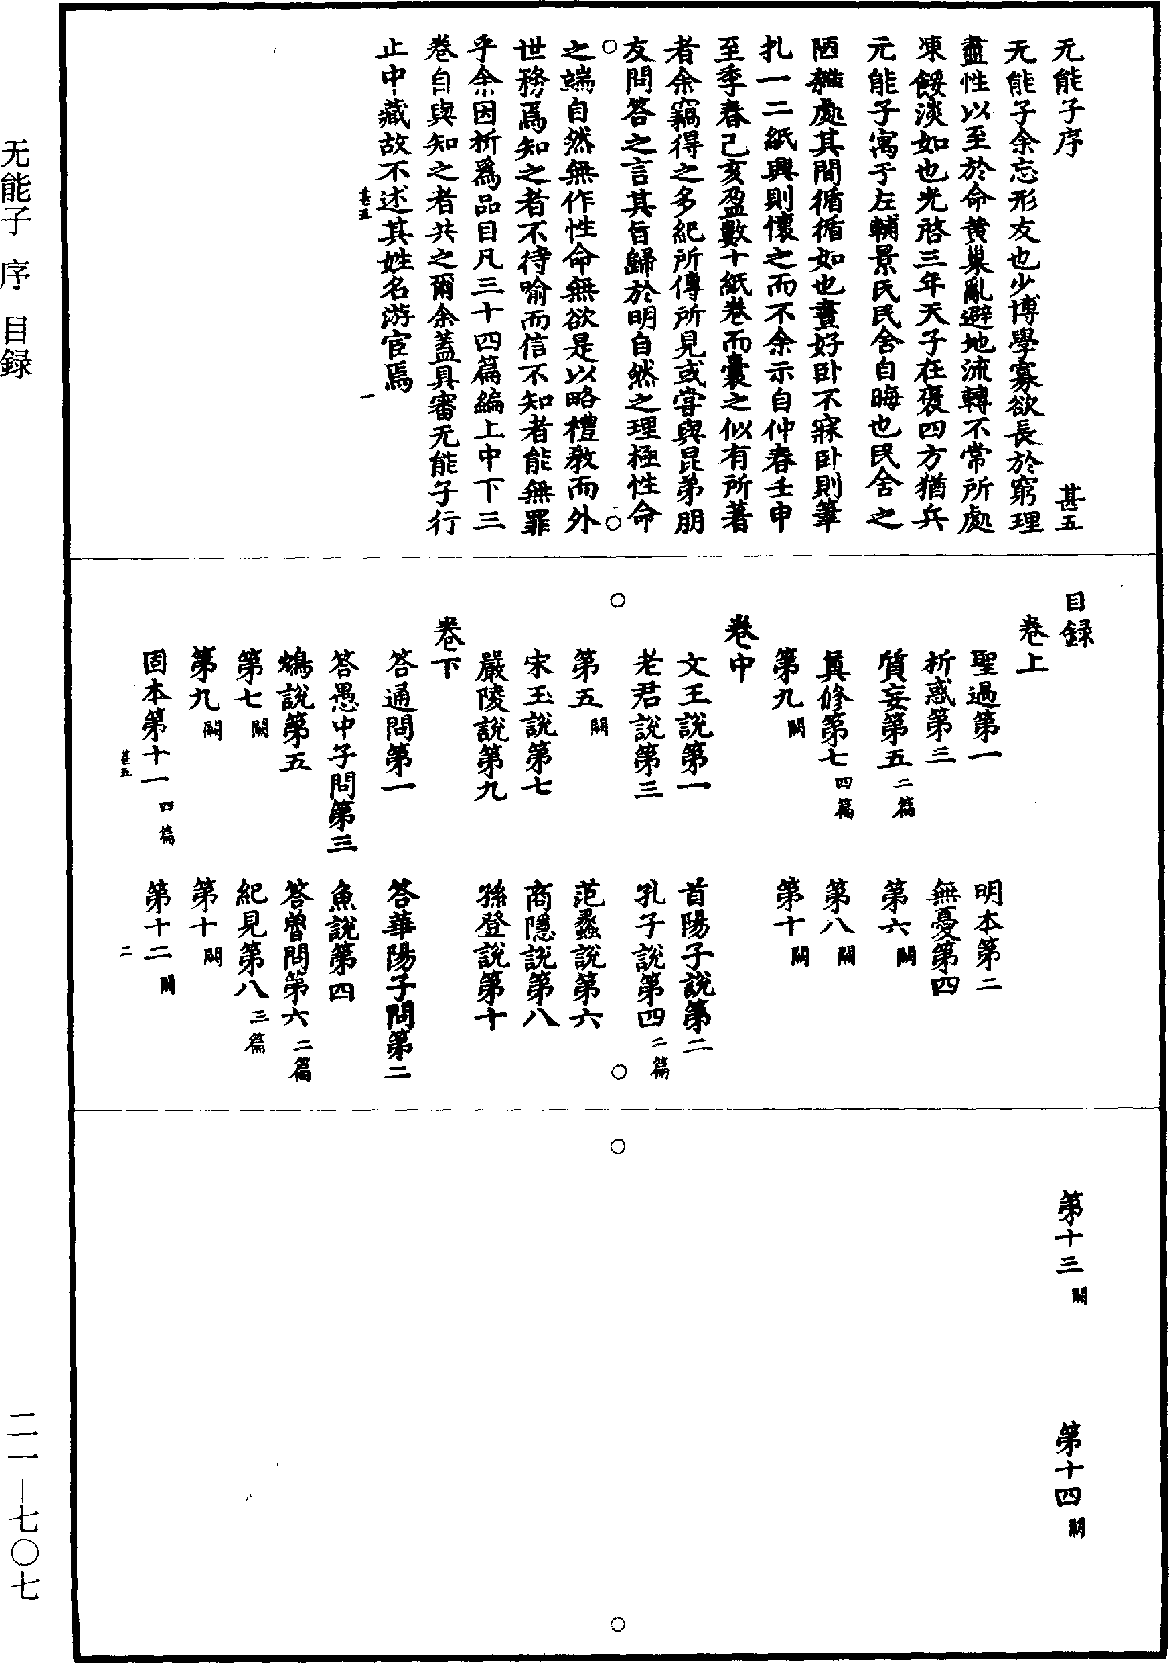 无能子序　甚五
无能子余忘形友也少博學寡欲長於窮理
盡性以至於命黄巢亂避地流轉不常所處
凍餒淡如也光啓三年天子在褒四方猶兵
无能子寓于左輔景氏民舍自晦也民舍之
陋雜處其間循循如也晝好卧不寐卧則筆
札一二紙興則懷之而不余示自仲春壬申
至季春己亥盈數十紙卷而囊之似有所著
者余竊得之多紀所傳所見或嘗與昆弟朋
友問答之言其旨歸於明自然之理極性命
之端自然無作性命無欲是以略禮教而外
世務焉知之者不待喻而信不知者能無罪
乎余因析爲品目凡三十四篇編上中下三
卷自與知之者共之爾余蓋具審无能子行
止中藏故不述其姓名游宦焉
甚五　一
目録
卷上
聖過第一　明本第二
析惑第三　無憂第四
質妄第五二篇　第六闕
真修第七四篇　第八闕
第九闕　第十闕
卷中
文王說第一　首陽子說第二
老君說第三　孔子說第四二篇
第五闕　范蠡說第六
宋玉說第七　商隱說第八
嚴陵說第九　孫登說第十
卷下
答通問第一　答華陽子問第二
答愚中子問第三　魚說第四
鴆說第五　答魯問第六二篇
第七闕　紀見第八三篇
第九闕　第十闕
固本第十一四篇　第十二闕
甚五　二
第十三闕　第十四闕
无能子　序　目録
二一—七〇七